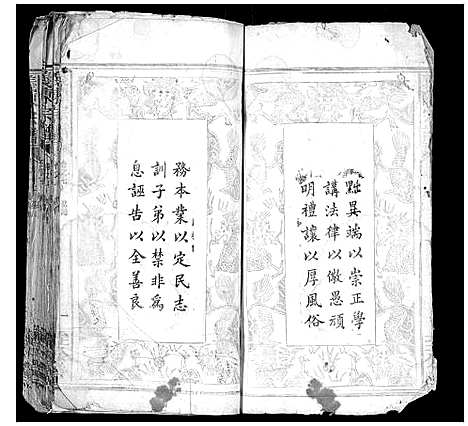 黜異端以崇正學
講法律以儆愚頑
明禮讓以厚風俗
務本業以定民志
訓子弟以禁非為
息誣告以全善良